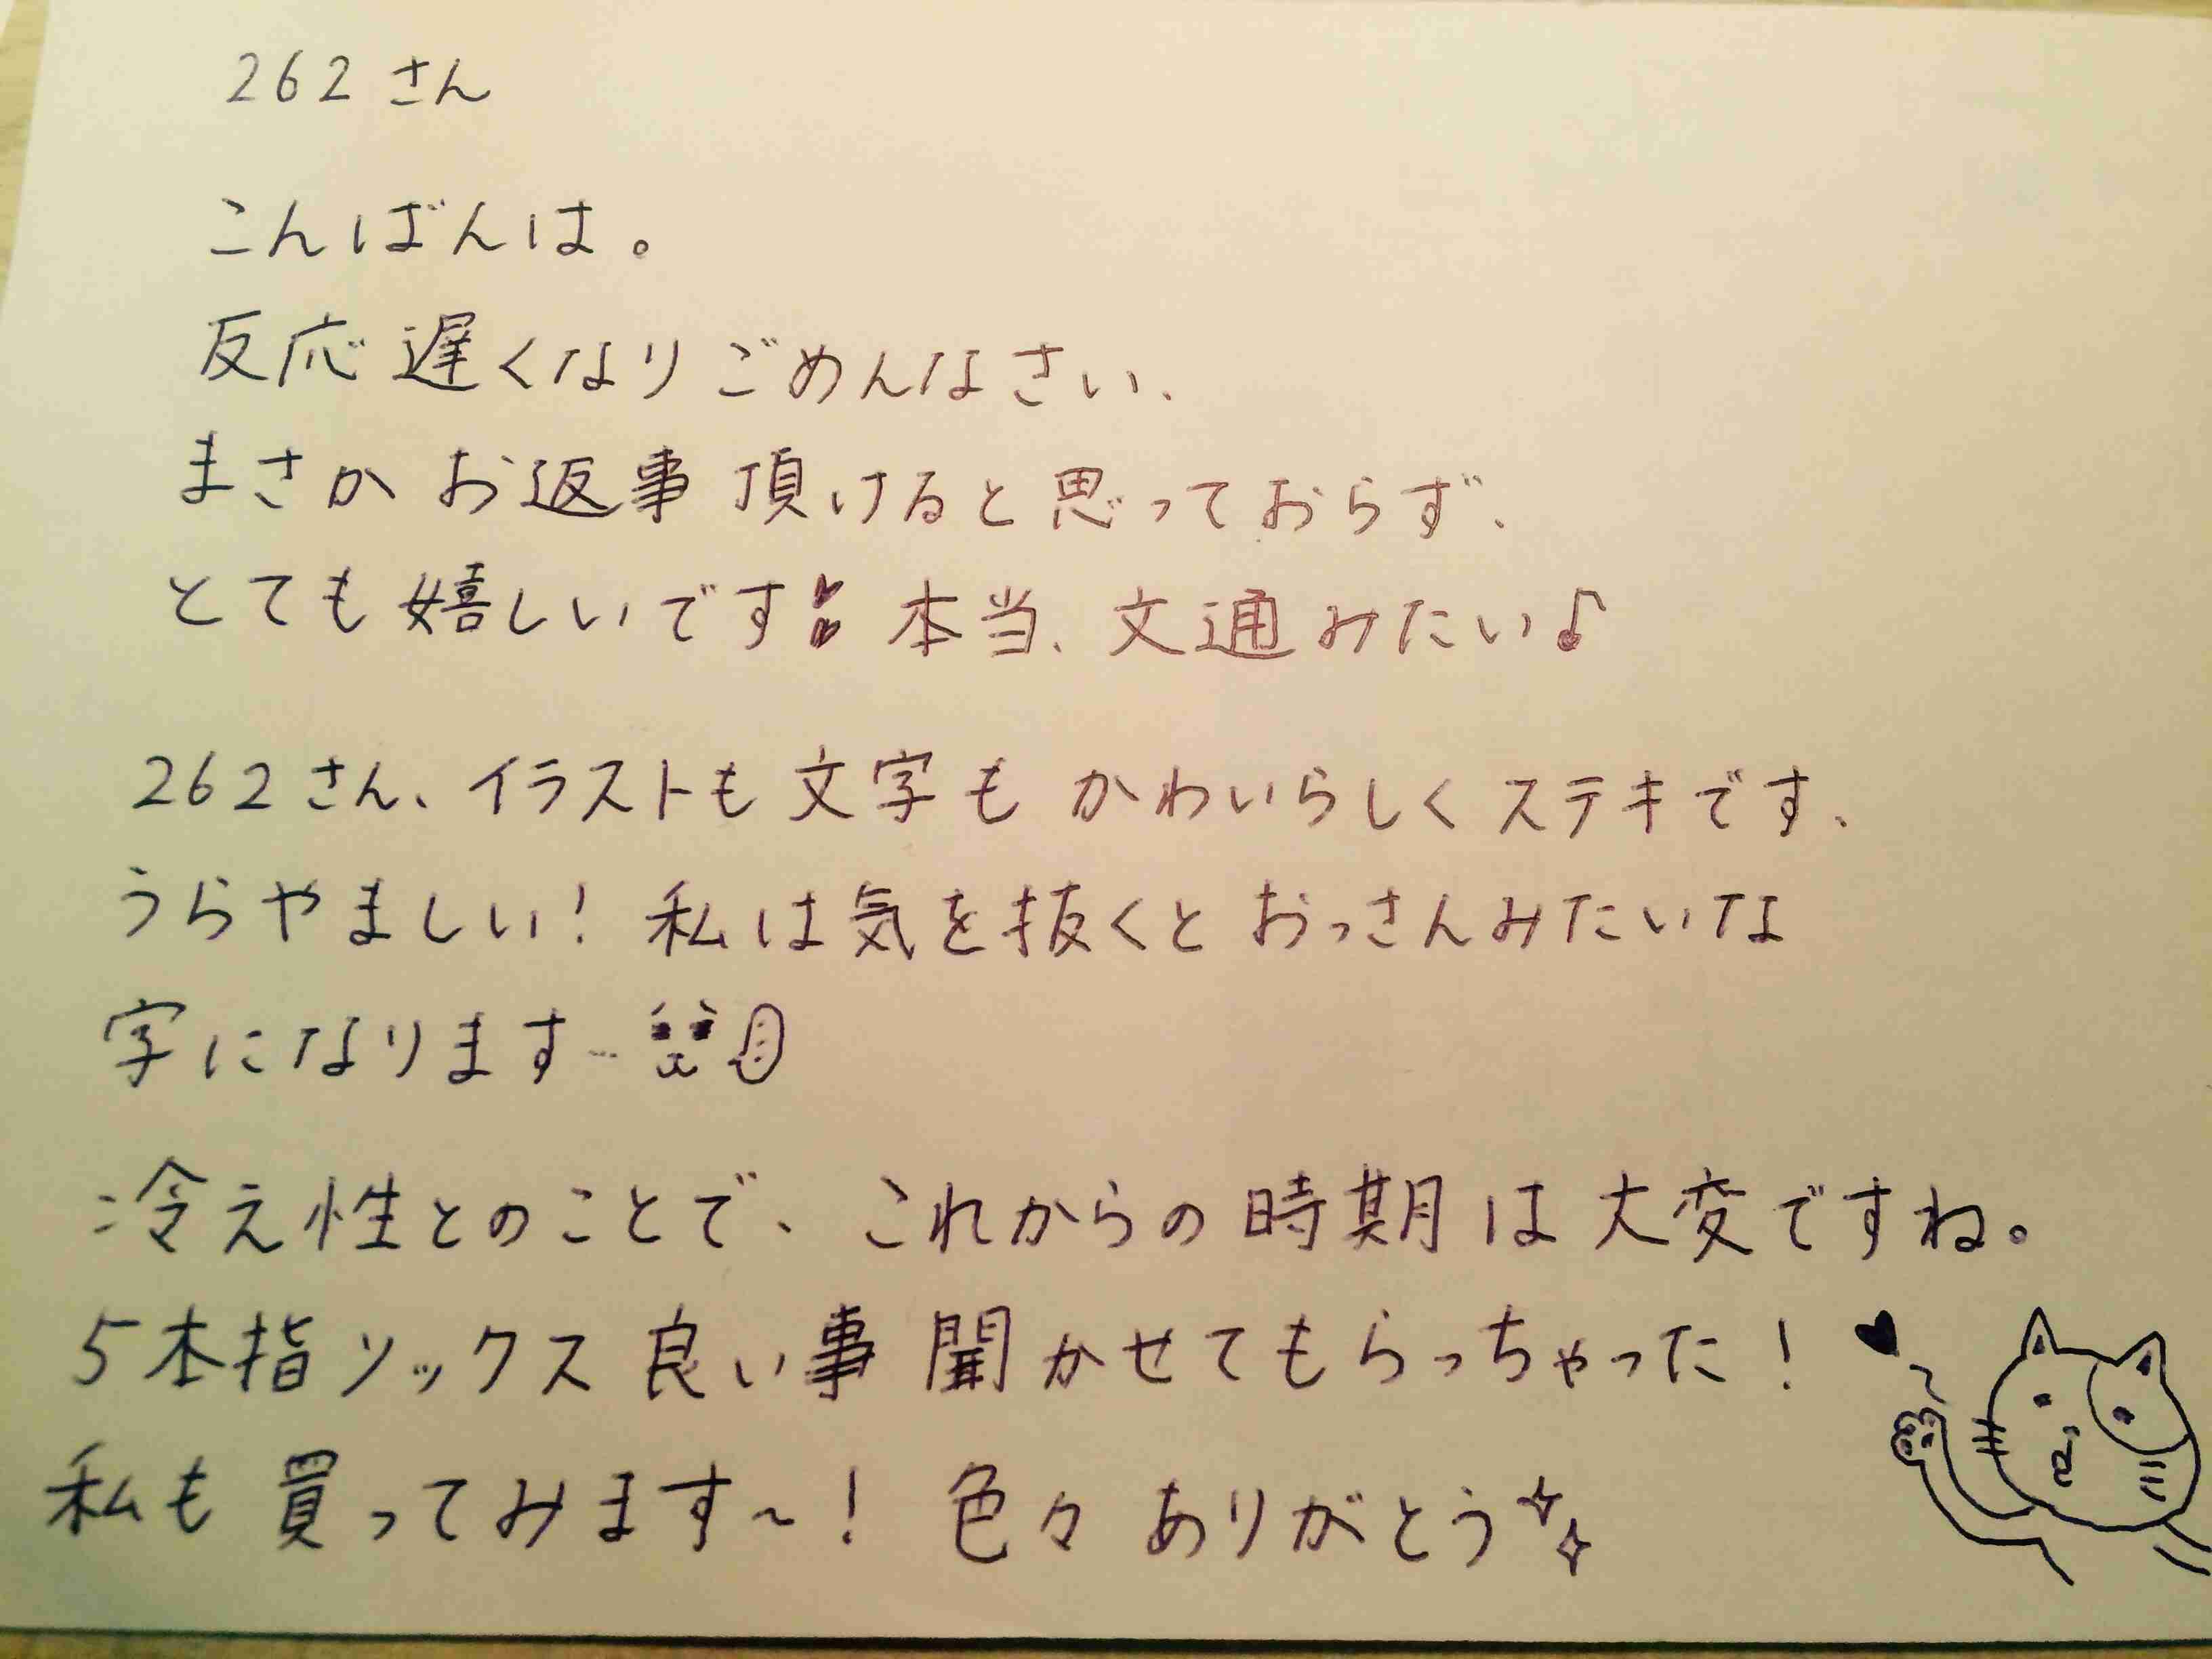 262さん
こんばんは。
反応遅くなりごめんなさい、
まさかお返事頂けると思っておらず、
とても嬉しいです❣❣本当、文通みたい♪
262さん、イラストも文字もかわいらしくステキです、
うらやましい!私は気を抜くとおっさんみたいな
字になります…
冷え性とのことで、これからの時期は大変ですね。
5本指ソックス良い事聞かせてもらっちゃった!
私も買ってみます~!色々ありがとう✨